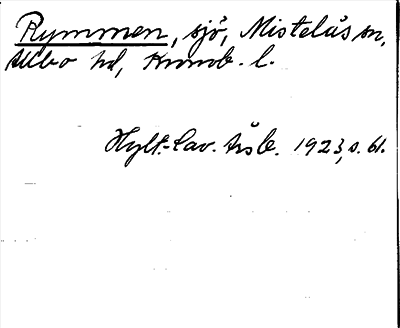 Rymmen, sjö, Mistelås sn,
Allbo hd, Kronob. l.
Hylt.-Cav. årsb. 1923, s. 61.